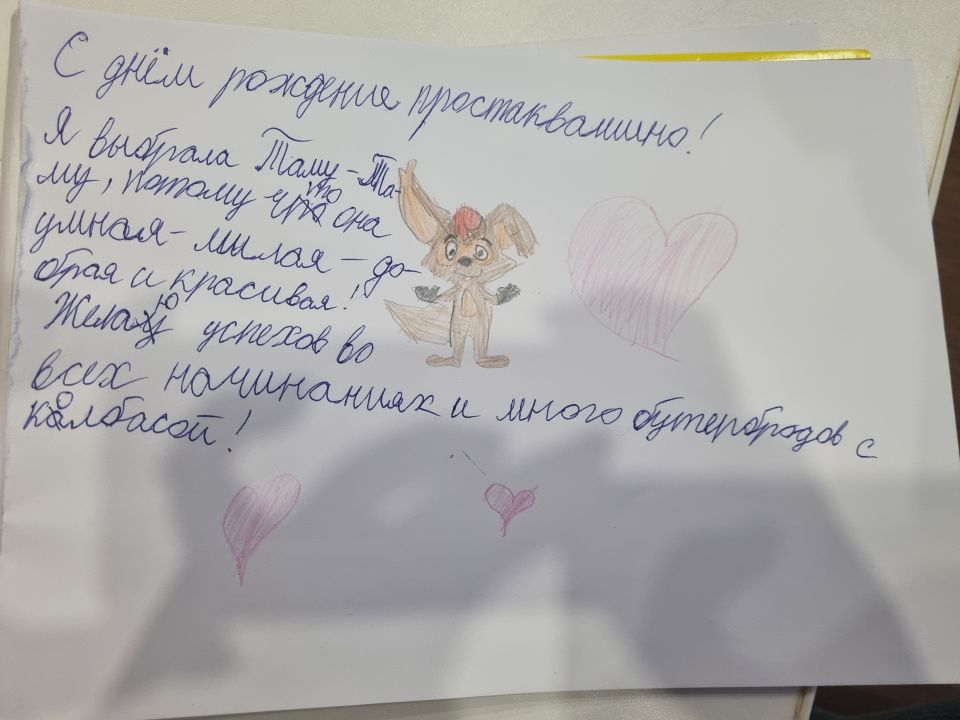 С днём рождения простаквашино!
Я выбрала Таму-Та-
му, потому что она
умная - милая - до-
брая и красивая!
Желаю успехов во
всех начинаниях и много бутербродов с
колбасой!